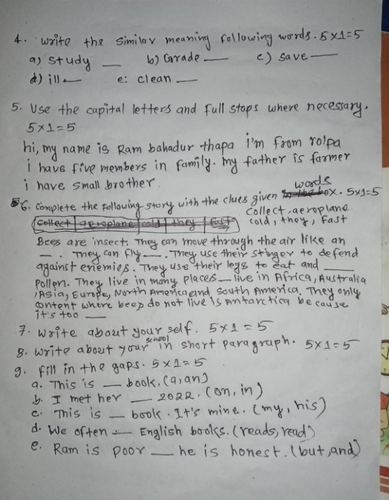 4. Write the similar meaning following words. 5x1=5
a) study — b) Grade — c) save —
d) ill — e: clean —
5. Use the capital letters and full stops where necessary.
5x1=5
hi, my name is Ram bahadur thapa i'm from rolpa
i have five members in family. my father is farmer
i have small brother.
6. Complete the following story with the clues given words. 5x1=5
collect, aeroplane
cold, they, Fast
Collect aeroplane cold they Fast
Bees are insect. They can move through the air like an
—. They can fly —. They use their stinger to defend
against enemies. They use their legs to eat and —
Pollen. They live in many places — live in Africa, Australia
, Asia, Europe, North America and South America. They only
contenent where bees do not live is antarctica be cause
it's too —
7. Write about your self. 5x1=5
8. Write about your school in short paragraph. 5x1=5
9. Fill in the gaps. 5x1=5
a. This is — book. (a, an)
b. I met her — 2022. (on, in)
c. This is — book. It's mine. (my, his)
d. We often — English books. (reads, read)
e. Ram is poor — he is honest. (but, and)